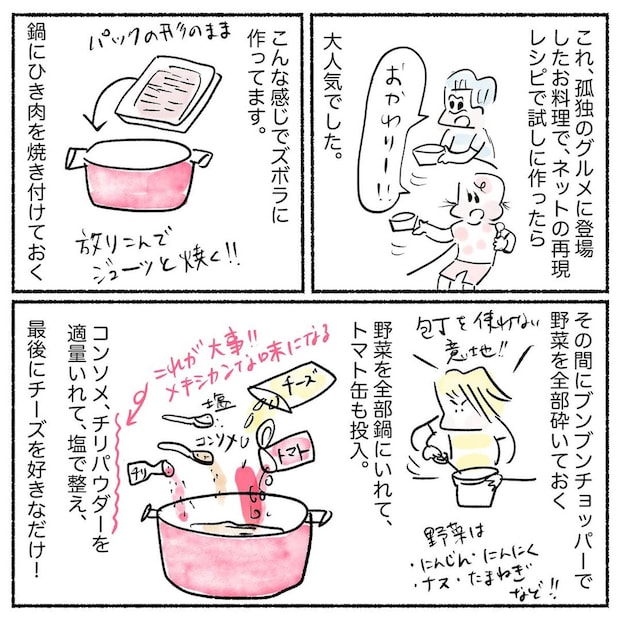 これ、孤独のグルメに登場
したお料理で、ネットの再現
レシピで試しに作ったら
大人気でした。
おかわりー!!
こんな感じでズボラに
作ってます。
パックの形のまま
鍋にひき肉を焼き付けておく
放りこんで
ジューッと焼く!!
その間にブンブンチョッパーで
野菜を全部砕いておく
包丁を使わない
意地!!
野菜は
・にんじん・にんにく
・ナス・たまねぎ
など!!
野菜を全部鍋にいれて、
トマト缶も投入。
チーズ
塩
コンソメ
トマト
チリ
これが大事!!
メキシカンな味になる
コンソメ、チリパウダーを
適量いれて、塩で整え、
最後にチーズを好きなだけ!